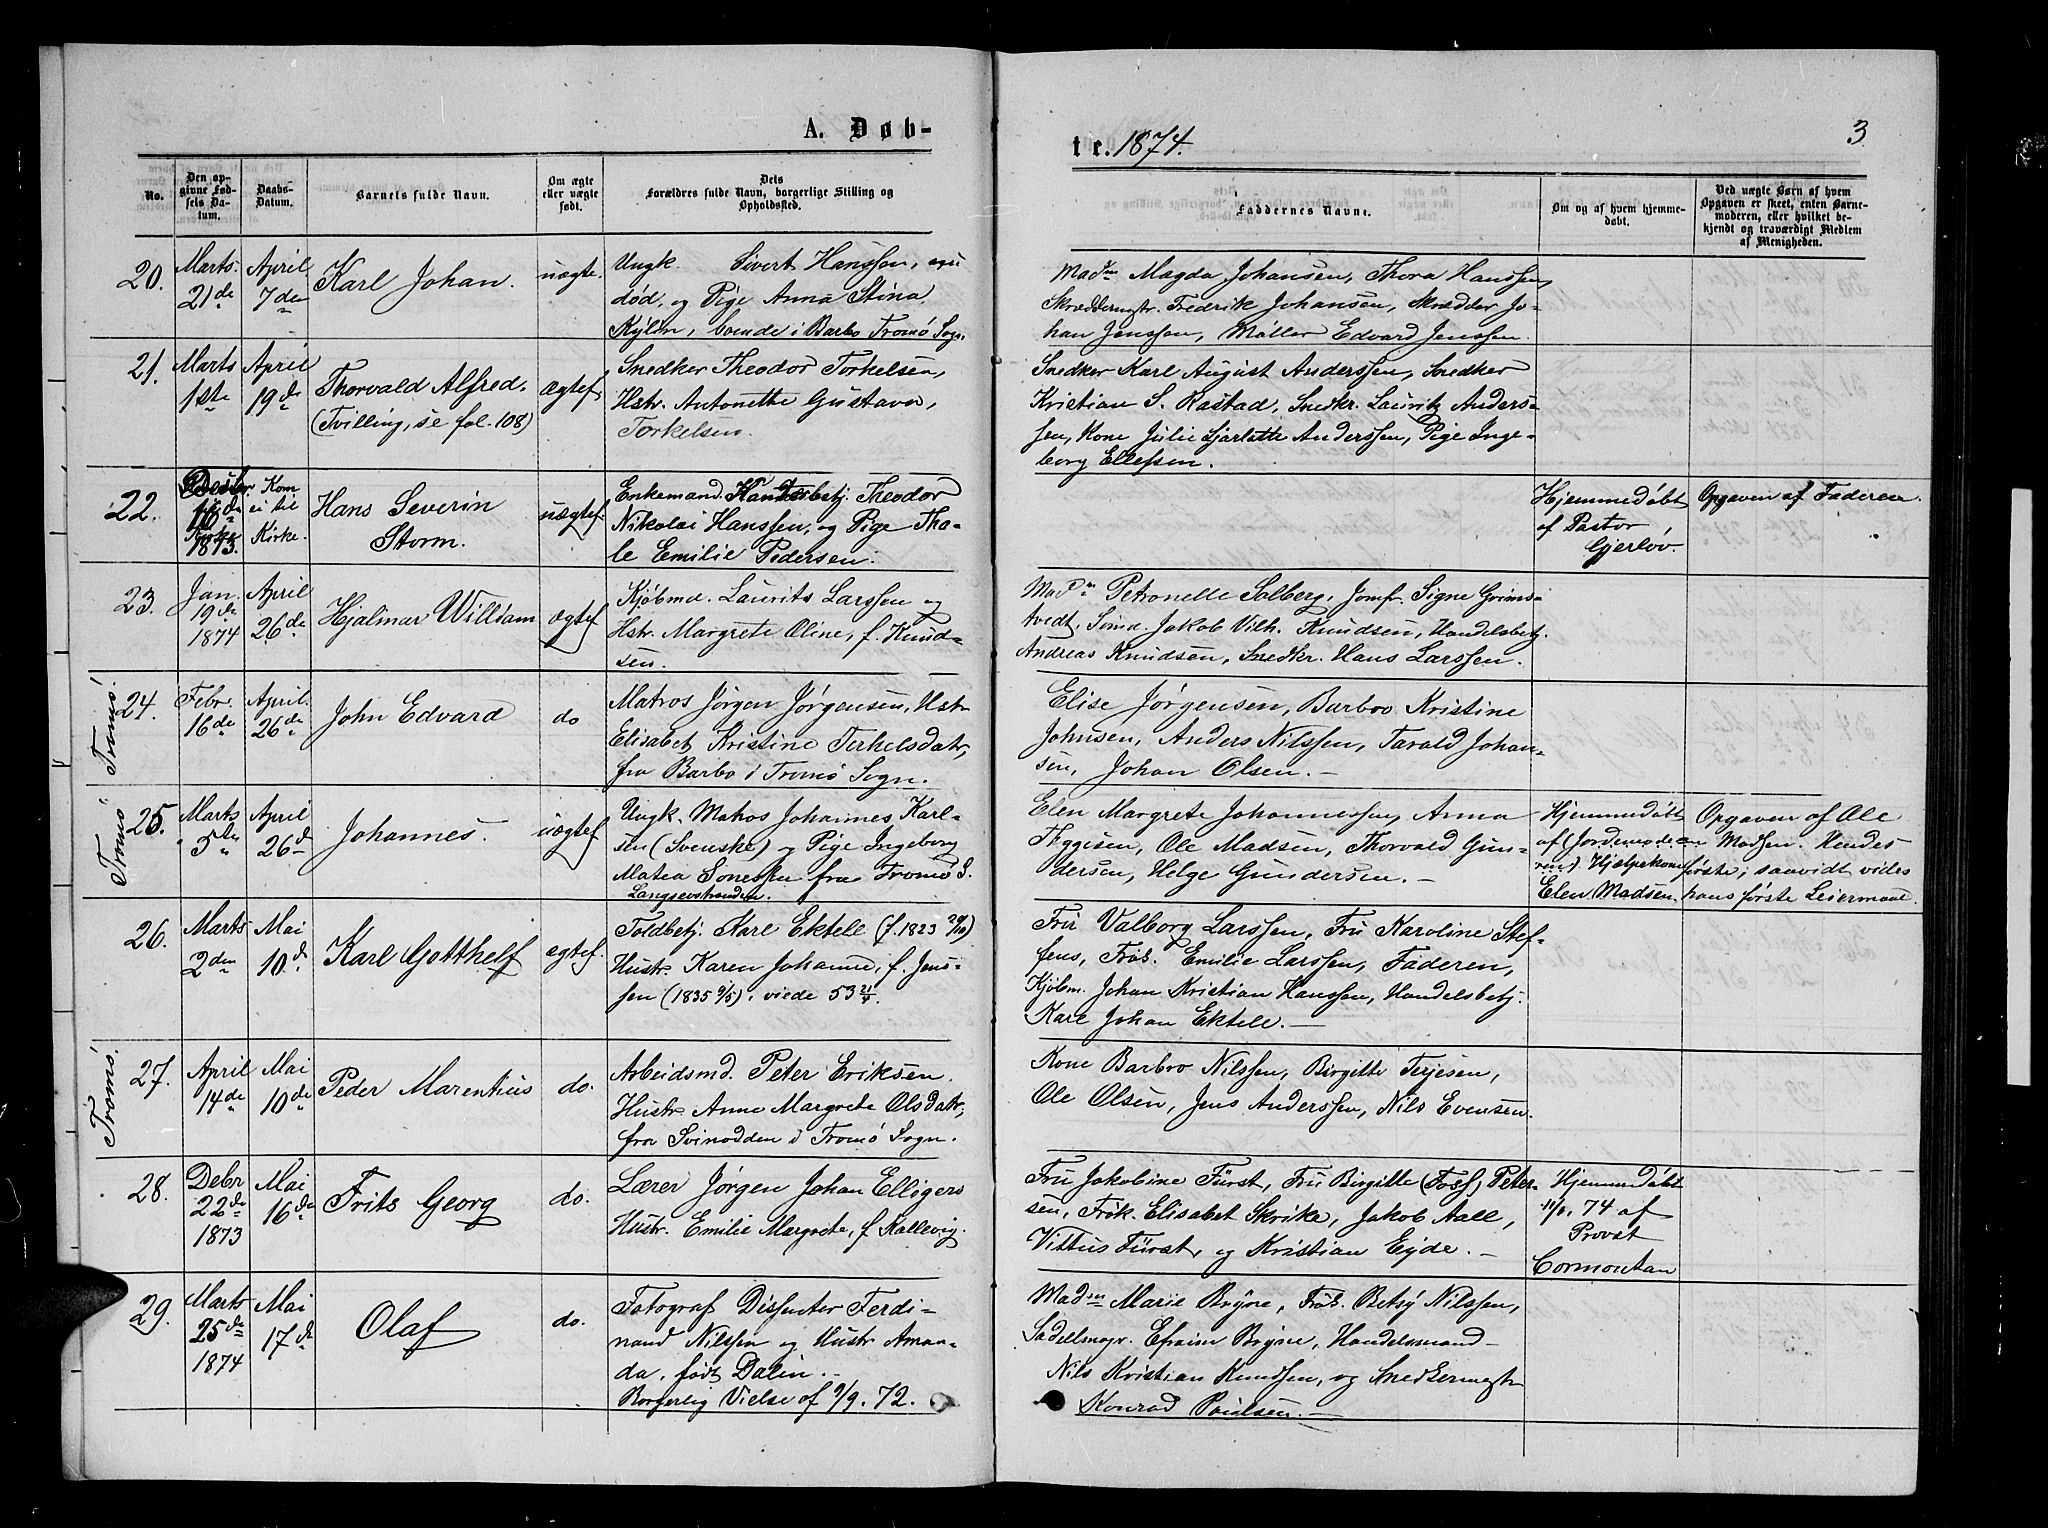 A. Døb-
te. 1874.
3
No.
Den op-
givne Fød-
sels Da-
tum.
Daabs-
Datum.
Barnets fulde Navn.
Om ægte
eller uægte
født.
Dets
Forældres fulde Navn, borgerlige Stilling og
Opholdssted.
Faddernes Navne.
Om og af hvem hjemme-
døbt.
Ved uægte Børn af hvem
Opgaven er skeet, enten Barne-
moderen, eller hvilket be-
kjendt og troværdigt Medlem
af Menigheden.
20.
Marts
21de
April
7den
Karl Johan.
uægte.
Ungk. Sivert Hanssen,
død, og Pige Anna Stina
Kylin, boende i Barbo Tromö Sogn.
Madm Magda Johansen, Thora Hanssen,
Skræddermstr. Fredrik Johansen, Skrædder Jo-
han Jenssen, Møller Edvard Jenssen.
21.
Marts
1ste
April
19de
Thorvald Alfred.
(Tvilling, se fol. 108)
ægtef.
Snedker Theodor Torkelsen,
Hstr. Antonette Gustava,
Torkelsen.
Snedker Karl August Anderssen, Snedker
Kristian S. Rastad, Snedkr. Lauritz Anders-
sen, Kone Julie Sjarlotte Anderssen, Pige Inge-
borg Ellefsen.
22.
Decbr.
1873.
Kom
ei til
Kirke.
Hans Severin
Storm.
uægtef.
Enkemand Theodor
Nikolai Hanssen, og Pige Tha-
le Emilie Pedersen.
Hjemmedøbt
af Pastor
Gjerløv.
Opgaven af Faderen.
23.
Jan.
19de
1874
April
26de
Hjalmar William
ægtef
Kjöbmd. Laurits Larssen og
Hstr. Margrete Oline, f. Knud-
sen.
Madm Petronelle Solberg, Jomf. Signe Grims-
tvedt, Sömd. Jakob Vilh. Knudsen, Handelsbetj.
Andreas Knudsen, Snedkr. Hans Larssen.
Tromö.
24.
Febr.
16de
April.
26de
John Edvard
do
Matros Jörgen Jörgensen, Hstr
Elisabet Kristine Terkelsdatr,
fra Barbo i Tromö Sogn.
Elise Jörgensen, Barbro Kristine
Johnsen, Anders Nilssen, Tarald Johan-
sen, Johan Olsen. —
Tromö
25.
Marts
5te
April
26d
Johannes.
uægtef
Ungk. Matros Johannes Karl-
sen (Svenske) og Pige Ingeborg
Matea fra Tromö S.
Langsevstranden.
Elen Margrete Johannessen, Anna
Ole Madsen, Thorvald Gun-
dersen, Helge Gundersen. —
Hjemmedöbt
af (Jordemode-
ren) Hjælpekone
Elen Madsen.
Opgaven af Ole
Madsen. Hendes
første, saavidt vides
hans første Leiermaal.
26.
Marts
2den
Mai
10d
Karl Gotthelf
egtef.
Toldbetj. Karl Ektell (f. 1823 29/10)
Hustr. Karen Johanne, f. Jens-
sen (1835 9/5), viede 53 21/9.
Fru Valborg Larssen, Fru Karoline Stef-
fens, Frök. Emilie Larssen, Faderen,
Kjöbm. Johan Kristian Hanssen, Handelsbetj.
Karl Johan Ektell. —
Tromö.
27.
April
14de
Mai
10de
Peder Marentius
do.
Arbeidsmd. Peter Eriksen.
Hustr. Anne Margrete Olsdatr,
fra Svinodden i Tromö Sogn.
Kone Barbro Nilssen, Birgitte Terjesen,
Ole Olsen, Jens Anderssen, Nils Evensen.
28.
Debr
22de
1873
Mai
16de
Frits Georg
do.
Lærer Jörgen Johan Elligers
Hustr. Emilie Margrete, f Kallevig.
Fru Jakobine Fürst, Fru Birgitte (Foss) Peter-
sen, Frök. Elisabet Skrike, Jakob Aall,
Vittus Fürst, og Kristian Eyde. —
Hjemmedöbt
11/1. 74 af
Provst
Cormontan
29.
Marts
25de
1874
Mai
17d
Olaf
do.
Fotograf Dissenter Ferdi-
nand Nilssen og Hustr Aman-
da, født Dalin. —
Borgerlig Vielse af 9/9. 72.
Madm Marie Bryne, Frök. Betsy Nilssen,
Sadelmagr. Efraim Bryne, Handelsmand
Nils Kristian Knudsen, og Snedkermestr
Konrad Poulsen. —